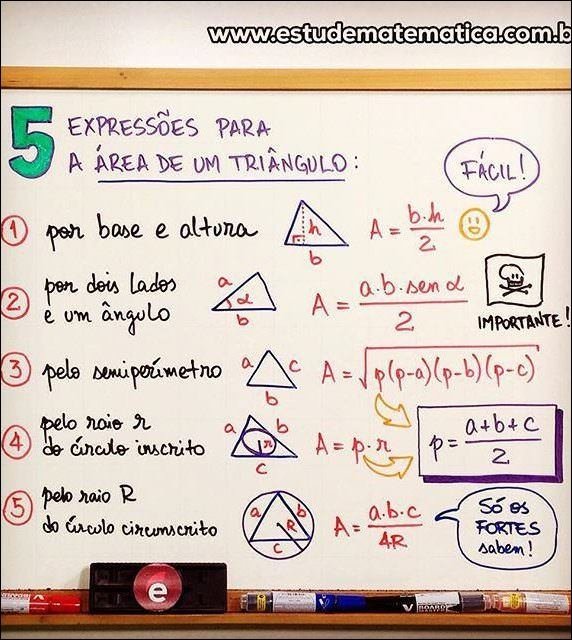 www.estudematematica.com.b
5 EXPRESSÕES PARA
A ÁREA DE UM TRIÂNGULO:
FÁCIL!
1 por base e altura h b A = b.h/2
2 por dois lados
e um ângulo a α b A = a.b.sen α/2
IMPORTANTE!
3 pelo semiperímetro a c b A = √p(p-a)(p-b)(p-c)
4 pelo raio r
do círculo inscrito a b r c A = p.r p = a+b+c/2
5 pelo raio R
do círculo circunscrito a b R c A = a.b.c/4R
Só os
FORTES
sabem!
e
BOARD